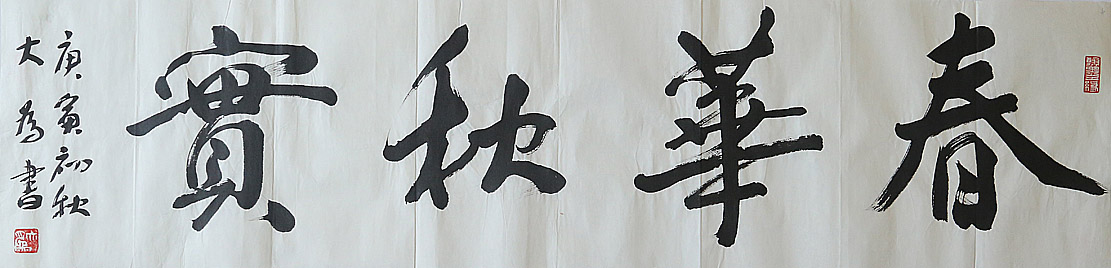 春華秋實
庚寅初秋
大為書